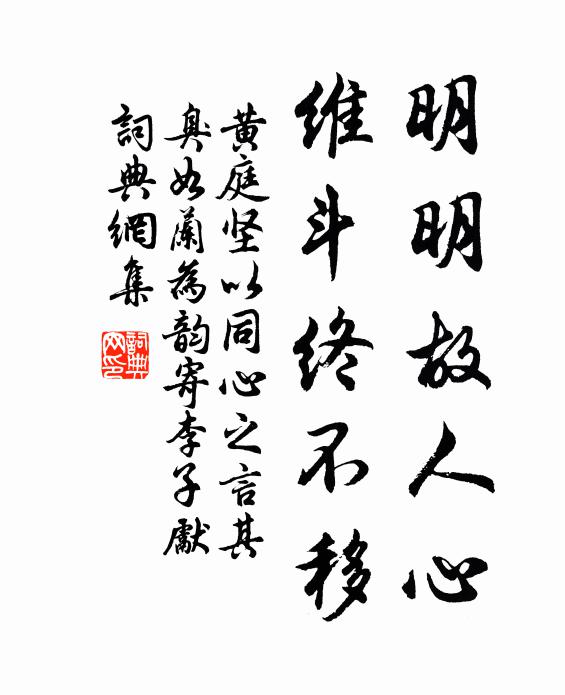 明明故人心
維斗終不移
黄庭坚以同心之言其
臭如蘭為韵寄李子獻
詞典網集
詞典网印